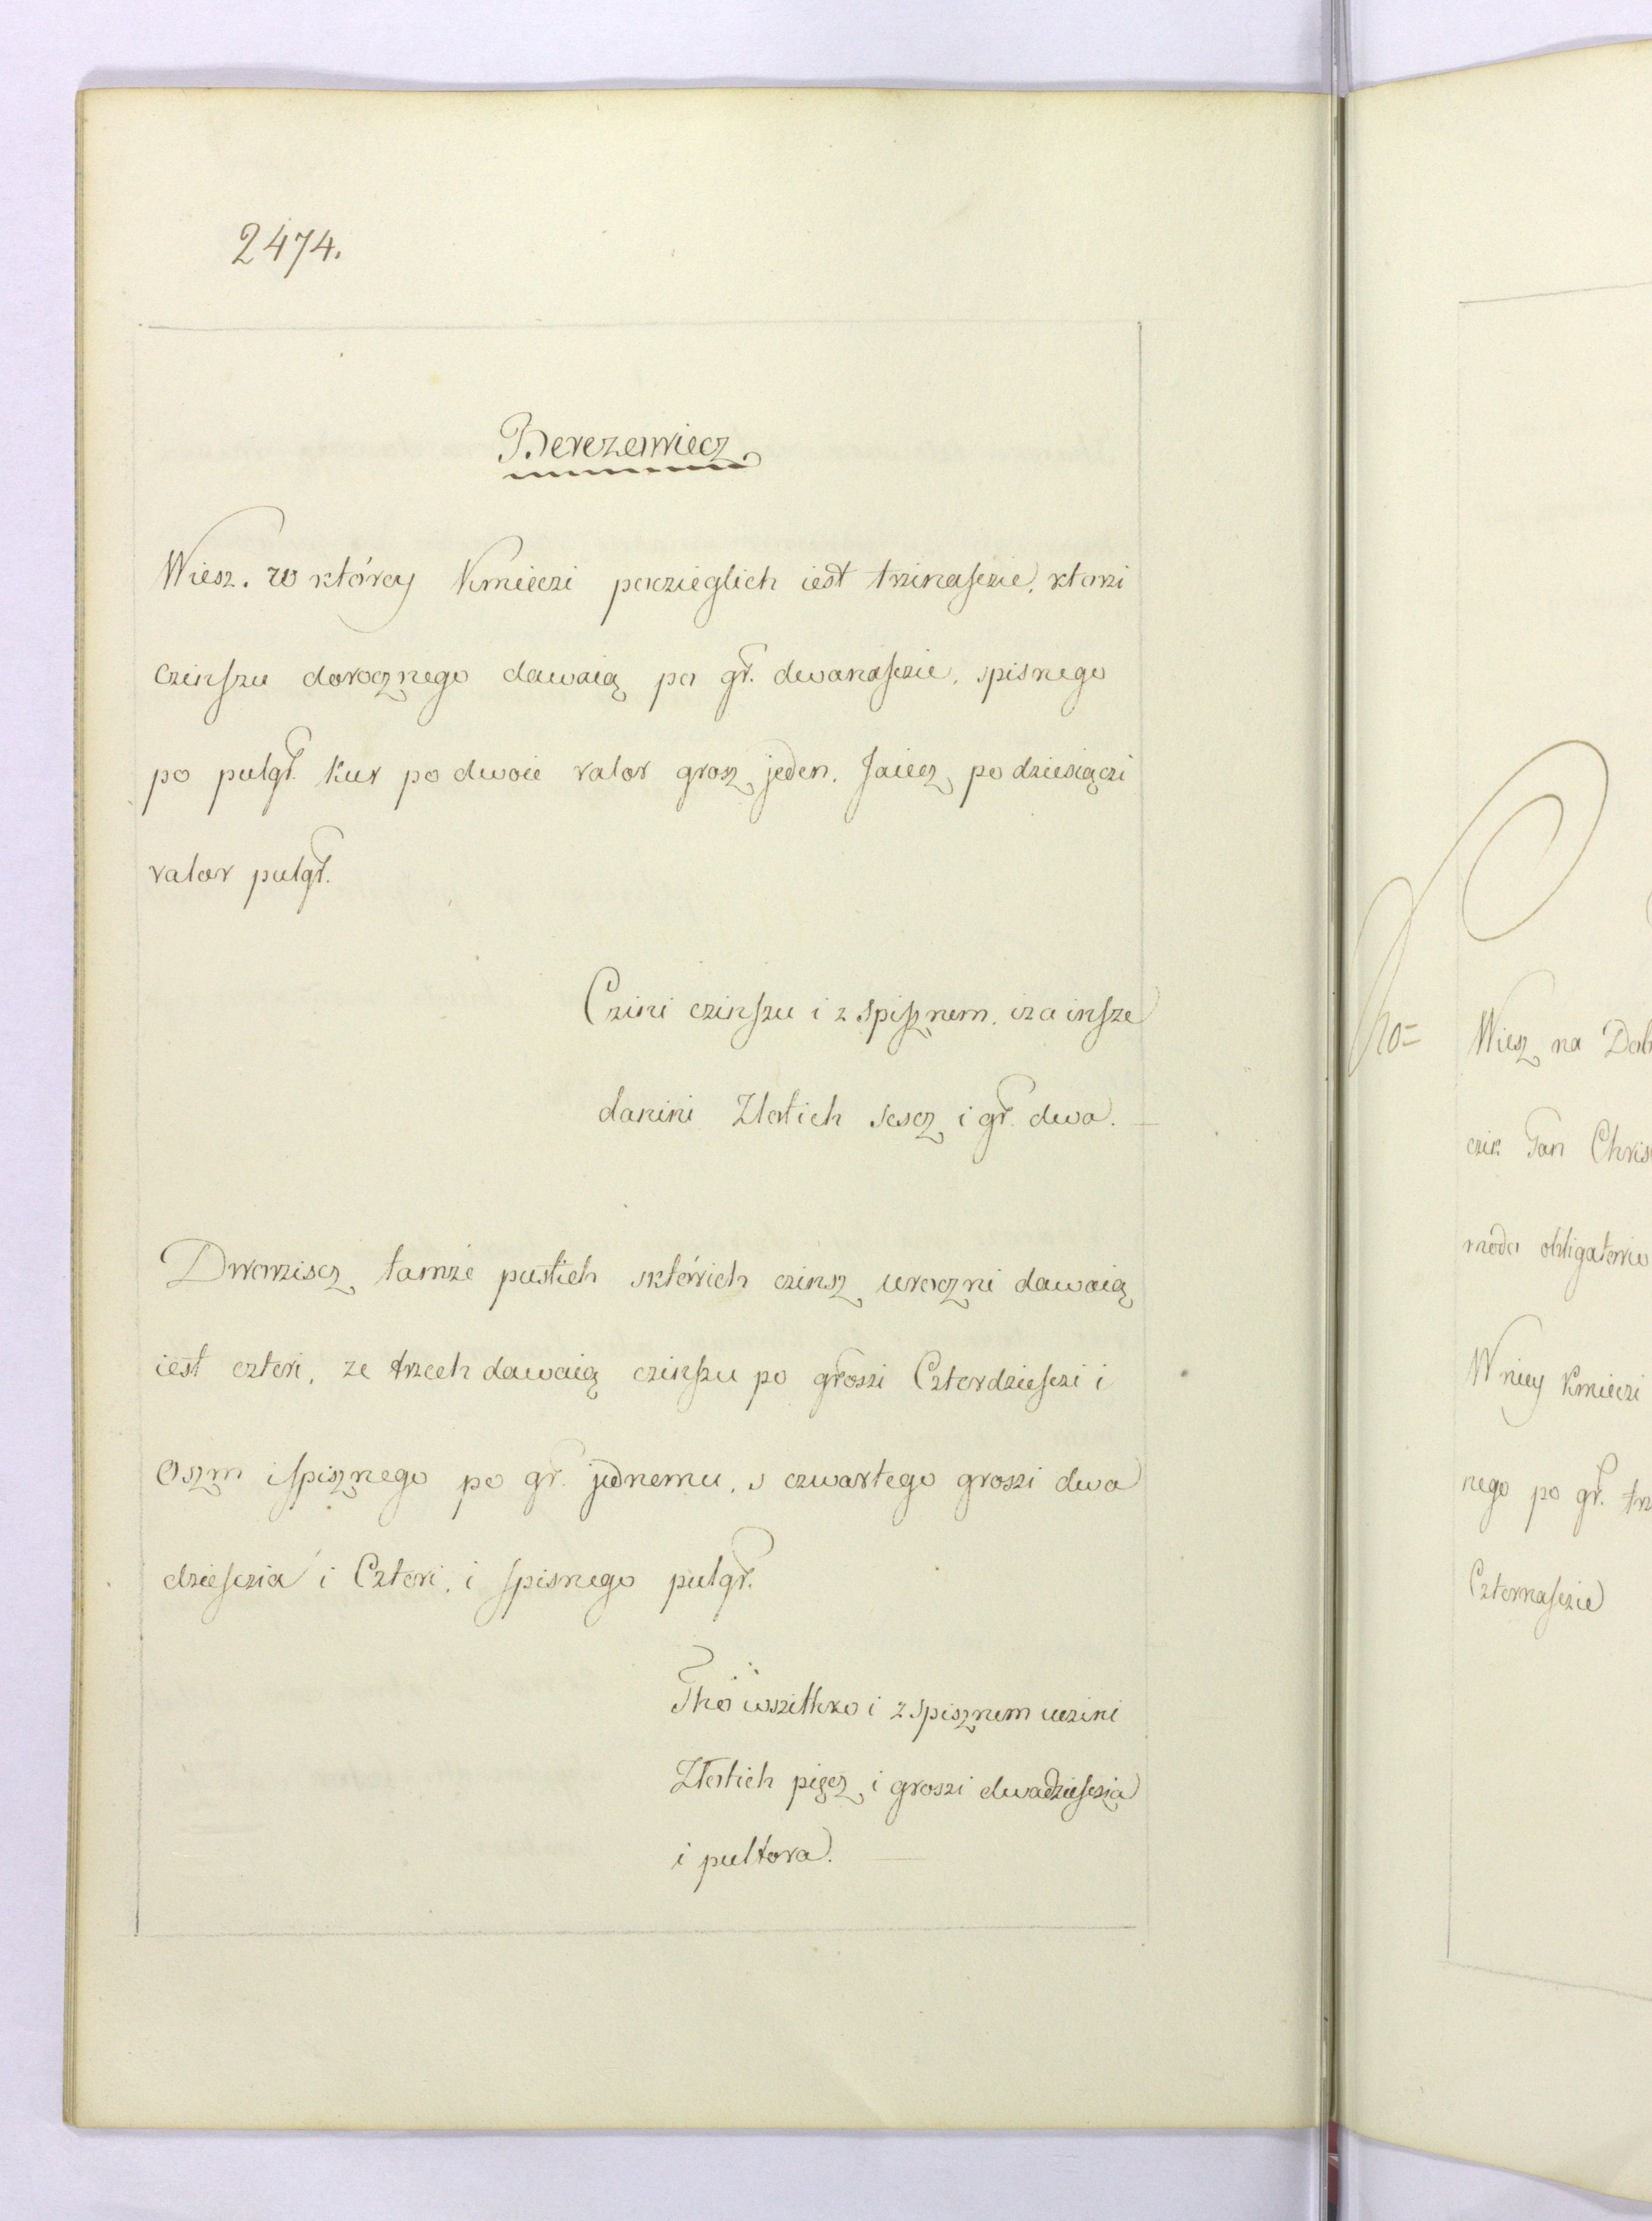 2474.
Berezewiecz
Wiesz. w którey Kmieczi poszieglich iest trzinaſczie, ktorzi
czinſzu dorocznego dawaią po gr. dwanaſczie, spisnego
po pulgr. kur po dwoie valor grosz jeden. Jaiecz po dziesiączi
valor pulgr.
Czini czinſzu i z spisznem. iza inſze
danini Zlotich sescz i gr. dwa.
Dworziscz tamże pustich sktórich czinsz uroczni dawaią
iest czteri, ze trzech dawaią czinſzu po groszi Czterdzieſczi i
Oszm iſpisznego po gr. jednemu, s czwartego groszi dwa
dzieſczia i Czteri, i ſpisnego pulgr.
Tho wszithko i z spisznem uczini
Złotich pięcz i groszi dwadzieſczia
i pultora.
no=
Wiesz na Dob
czik Jan Chris
modo obligatorio
W niey Kmieczi
nego po gr. trz
Czternaſczie